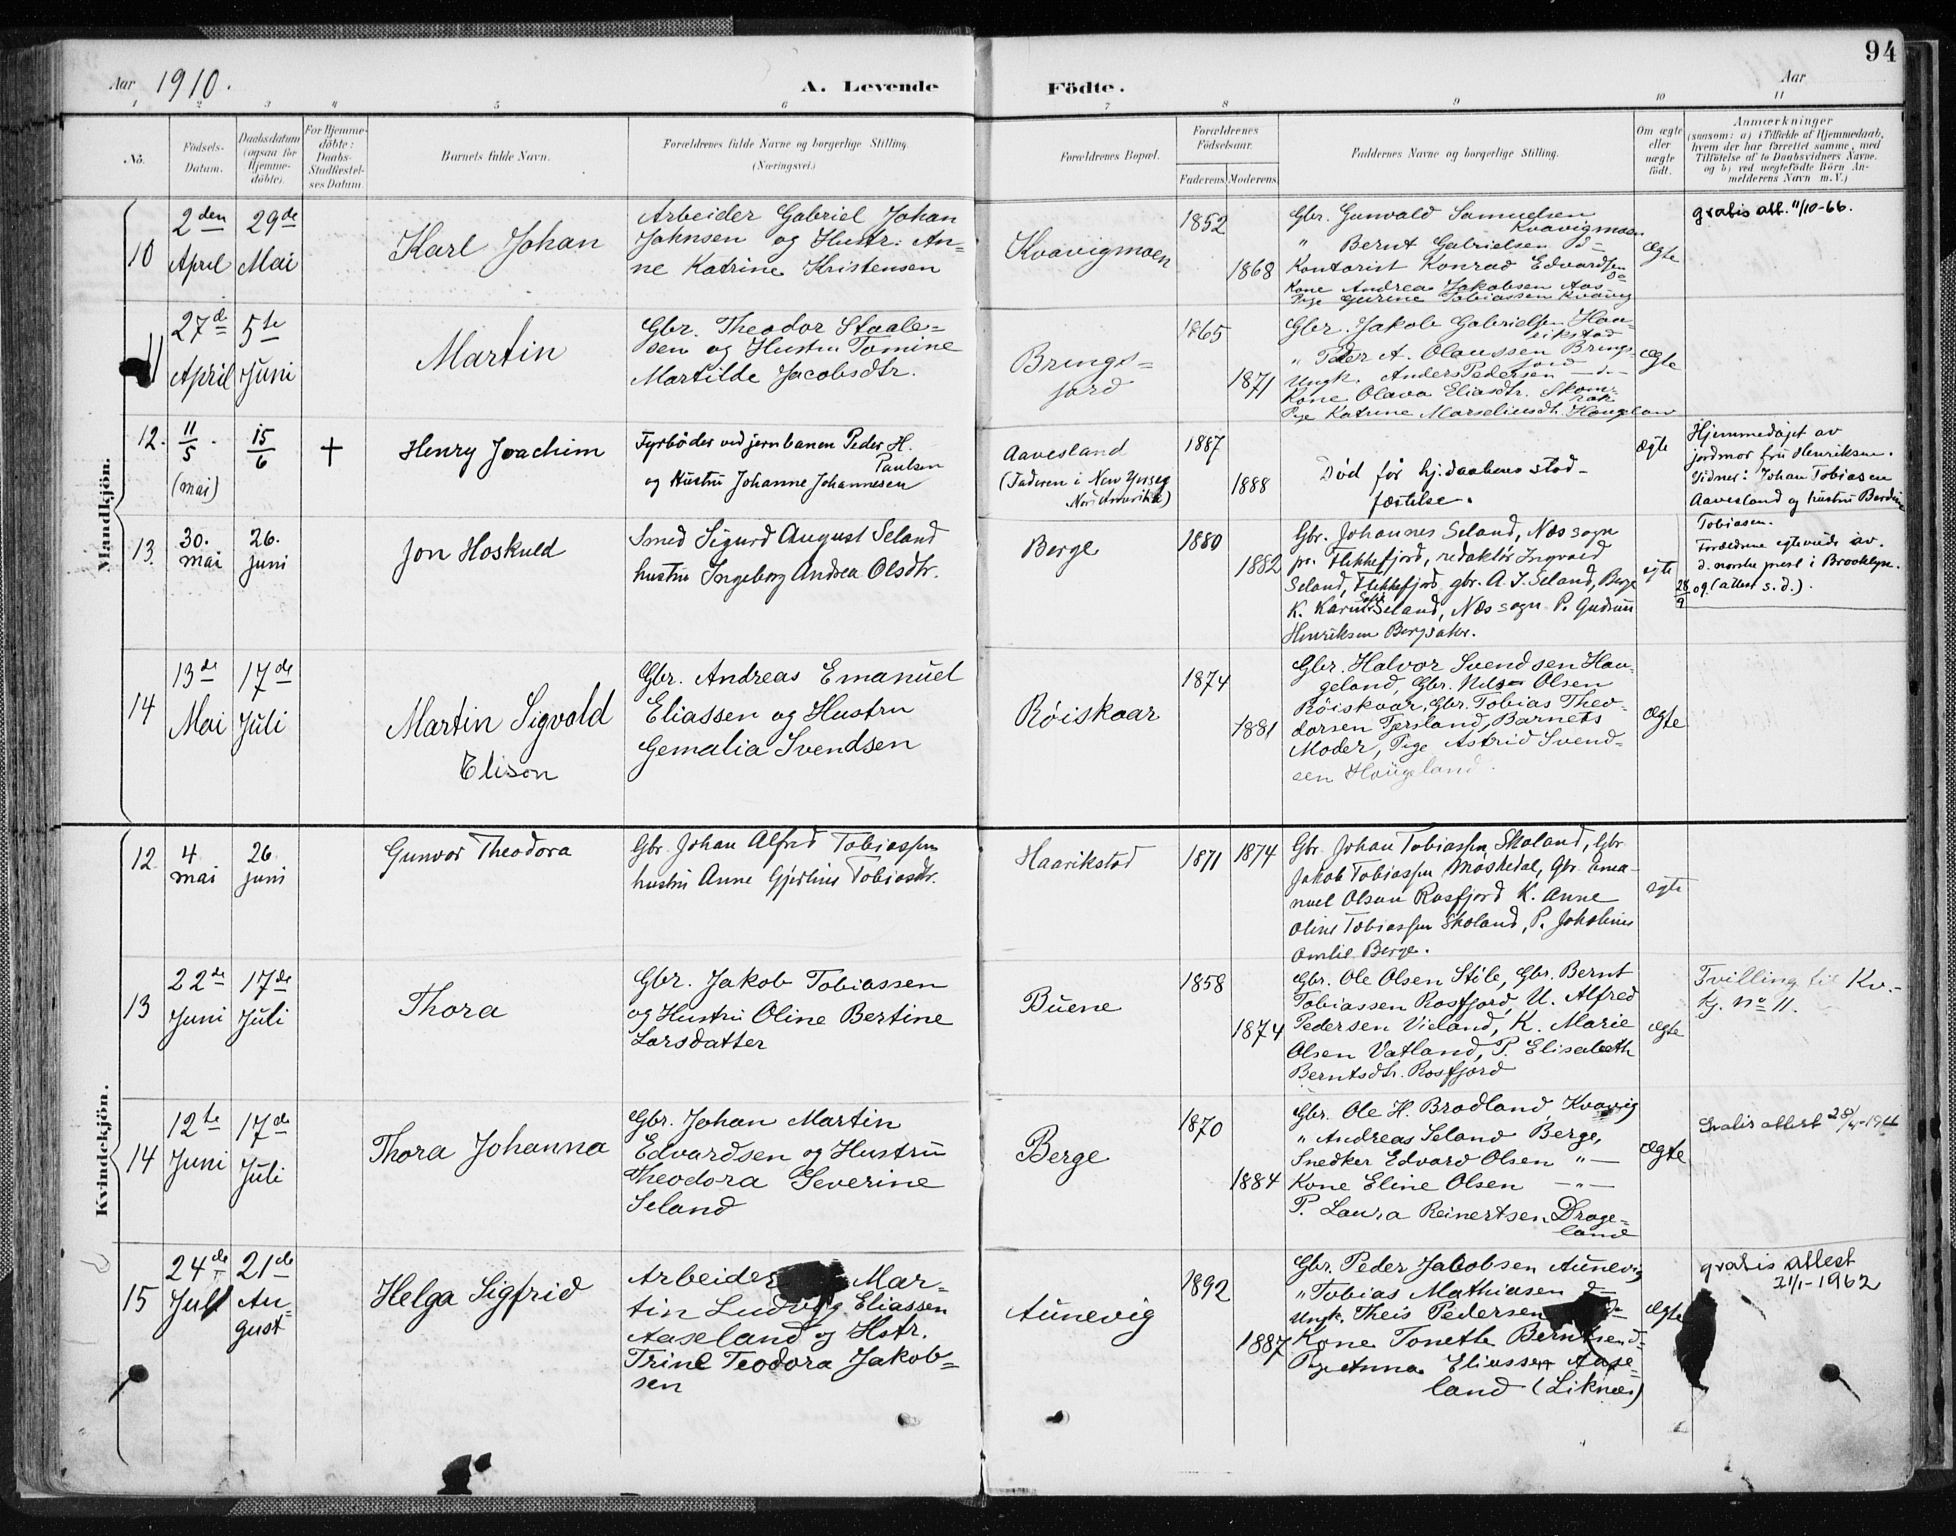 94
Aar 1910. A. Levende Födte. Aar
1 2 3 4 5 6 7 8 9 10 11
No.
Födsels-
Datum.
Daabsdatum
(ogsaa for
Hjemme-
döbte).
For Hjemme-
döbte:
Daabs-
Stadfæstel-
ses Datum.
Barnets fulde Navn.
Forældrenes fulde Navne og borgerlige Stilling.
(Næringsvei.)
Forældrenes Bopæl.
Forældrenes
Födselsaar.
Faderens. Moderens.
Faddernes Navne og borgerlige Stilling.
Om ægte
eller
uægte
födt.
Anmærkninger
(saasom: a) i Tilfælde af Hjemmedaab,
hvem der har forrettet samme, med
Tilföielse af to Daabsvidners Navne.
og b) ved uægtefödte Börn An-
melderens Navn m. V.)
Mandkjön.
10
2den
April
29de
Mai
Karl Johan
Arbeider Gabriel Johan
Johnsen og Hustr: An-
ne Katrine Kristensen
Kvavigmoen
1852
1868
Gbr. Gunvald Samuelsen
Kvavigmoen
" Bernt Gabrielsen d-
Kontorist Konrad Edvardsen
do
Kone Andrea Jakobsen Aas
Pige Gurine Tobiassen Kvavig
Ægte
gratis att. 11/10-66.
11
27de
April
5te
Juni
Martin
Gbr. Theodor Staale-
sen og Hustru Tomine
Martilde Jacobsdtr.
Brings-
jord
1865
1871
Gbr. Jakob Gabrielsen Haa-
rikstad
" Peder A. Olaussen Brings-
jord
Ungk. Anders Pedersen - " -
Kone Olava Eliasdtr. Skom-
rak
Pige Katrine Marseliusdt. Haugland
Ægte
12.
11/5.
(mai)
15/6
+
Henry Joachim
Fyrbøder ved jernbanen Peder H.
Paulsen
og Hustru Johanne Johannesen
Aavesland
(Faderen i New Yersey
Nord Amerika)
1887
1888
Død før hj.daabens stad-
fæstelse.
Ægte
Hjemmedøpt av
jordmor fru Henriksen.
Vidner: Johan Tobiasen
Aavesland og hustru Berdine
Tobiasen.
Forældrene egteviede av.
d. norske prest i Brooklyn.
28/9 09. (attest s.d.).
13.
30.
mai
26.
juni
Jon Hoskuld
Smed Sigurd August Seland
hustru Ingeborg Andrea Olsdtr.
Berge
1880
1882
Gbr. Johannes Seland, Næs sogn
pr. Flekkefjord, redaktør Ingvald
Seland, Flekkefjord, gbr. A. I. Seland, Berge
K. Karine Sofie Seland, Næs sogn P. Gudrun
Henriksen Bergsaker.
egte
14
13de
Mai
17de
Juli
Martin Sigvald
Elison
Gbr. Andreas Emanuel
Eliassen og Hustru
Gemalia Svendsen
Røiskaar
1874
1881
Gbr. Halvor Svendsen Hau-
geland, Gbr. Nils Olsen
Røiskaar, Gbr. Tobias Theo-
dorsen Tjersland, Barnets
Moder, Pige Astrid Svend-
sen Haugeland.
Ægte
Kvindekjön.
12.
4
mai
26
juni
Gunvor Theodora
Gbr. Johan Alfred Tobiassen
hustru Anne Gjertine Tobiasdtr.
Haarikstad
1871
1874
Gbr. Johan Tobiassen Skoland, Gbr
Jakob Tobiassen Møskedal, Gbr. Ema-
nuel Olsen Rosfjord K. Anne
Oline Tobiassen Skoland, P.
Amlie Berge.
egte
13
22de
Juni
17de
Juli
Thora
Gbr. Jakob Tobiassen
og Hustru Oline Bertine
Larsdatter
Buene
1858
1874
Gbr. Ole Olsen Stile, Gbr. Bernt
Tobiassen Rosfjord, U. Alfred
Pedersen Vieland, K. Marie
Olsen Vatland, P. Elisabeth
Berntsdtr. Rosfjord
Ægte
Tvilling til Kv.-
kj. No 11.
14
12te
Juni
17de
Juli
Thora Johanna
Gbr. Johan Martin
Edvardsen og Hustru
Theodora Severine
Seland
Berge
1870
1884
Gbr. Ole H. Bradland, Kvavig
" Andreas Seland Berge,
Snedker Edvard Olsen " -
Kone Eline Olsen - " -
P. Laura Reinertsen Drage-
land
Ægte
Gratis attest
15
24de
Juli
21de
Au-
gust
Helga Sigfrid
Arbeider Mar-
tin Ludvig Eliassen
Aaseland og Hstr.
Trine Teodora Jakob-
sen
Aunevig
1892
1887
Gbr. Peder Jacobsen Aunevig
" Tobias Mathiasen d-
Ungk. Theis Pedersen
Kone Tonette Berntsen d-
Pige Anna Eliassen Aase-
land (Liknes)
Ægte
gratis attest
21/1-1962